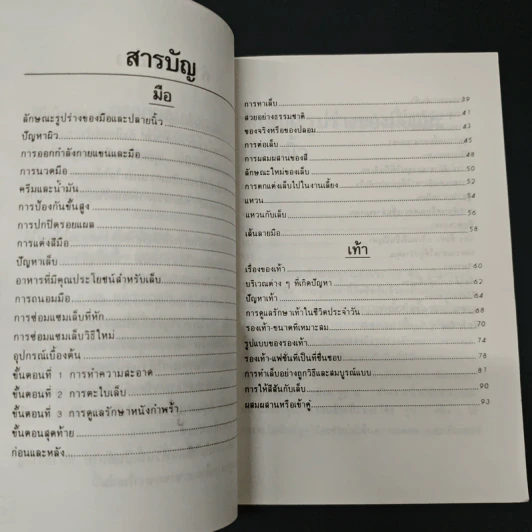 สารบัญ
มือ
ลักษณะรูปร่างของมือและปลายนิ้ว
ปัญหาผิว
การออกกำลังกายแขนและมือ
การนวดมือ
ครีมและน้ำมัน
การป้องกันขั้นสูง
การปกปิดรอยแผล
การแต่งสีมือ
ปัญหาเล็บ
อาหารที่มีคุณประโยชน์สำหรับเล็บ
การถนอมมือ
การซ่อมแซมเล็บที่หัก
การซ่อมแซมเล็บวิธีใหม่
อุปกรณ์เบื้องต้น
ขั้นตอนที่ 1 การทำความสะอาด
ขั้นตอนที่ 2 การตะไบเล็บ
ขั้นตอนที่ 3 การดูแลรักษาหนังกำพร้า
ขั้นตอนสุดท้าย
ก่อนและหลัง
การทาเล็บ 39
สวยอย่างธรรมชาติ 41
ของจริงหรือของปลอม 43
การต่อเล็บ 45
การผสมผสานของสี 48
ลักษณะใหม่ของเล็บ 50
การตกแต่งเล็บไปในงานเลี้ยง 52
แหวน 54
แหวนกับเล็บ 56
เส้นลายมือ 58
เท้า
เรื่องของเท้า 60
บริเวณต่าง ๆ ที่เกิดปัญหา 62
ปัญหาเท้า 64
การดูแลรักษาเท้าในชีวิตประจำวัน 68
รองเท้า-ขนาดที่เหมาะสม 70
รูปแบบของรองเท้า 74
รองเท้า-แฟชั่นที่เป็นที่ชื่นชอบ 78
การทำเล็บอย่างถูกวิธีและสมบูรณ์แบบ 87
การให้สีสันกับเล็บ 90
ผสมผสานหรือเข้าคู่ 93